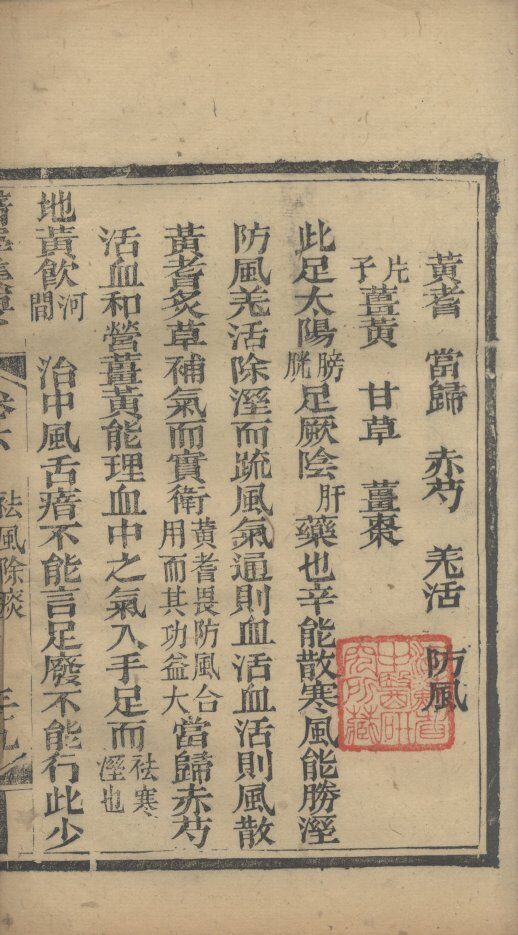 黃耆 當歸 赤芍 羌活 防風
片子薑黃 甘草 薑棗
此足太陽膀胱足厥陰肝藥也辛能散寒風能勝溼
防風羌活除溼而疏風氣通則血活血活則風散
黃耆炙草補氣而實衛黃耆畏防風合用而其功益大當歸赤芍
活血和營薑黃能理血中之氣入手足而祛寒溼也
地黃飲河間 治中風舌瘖不能言足廢不能行此少
卷六 祛風除痰